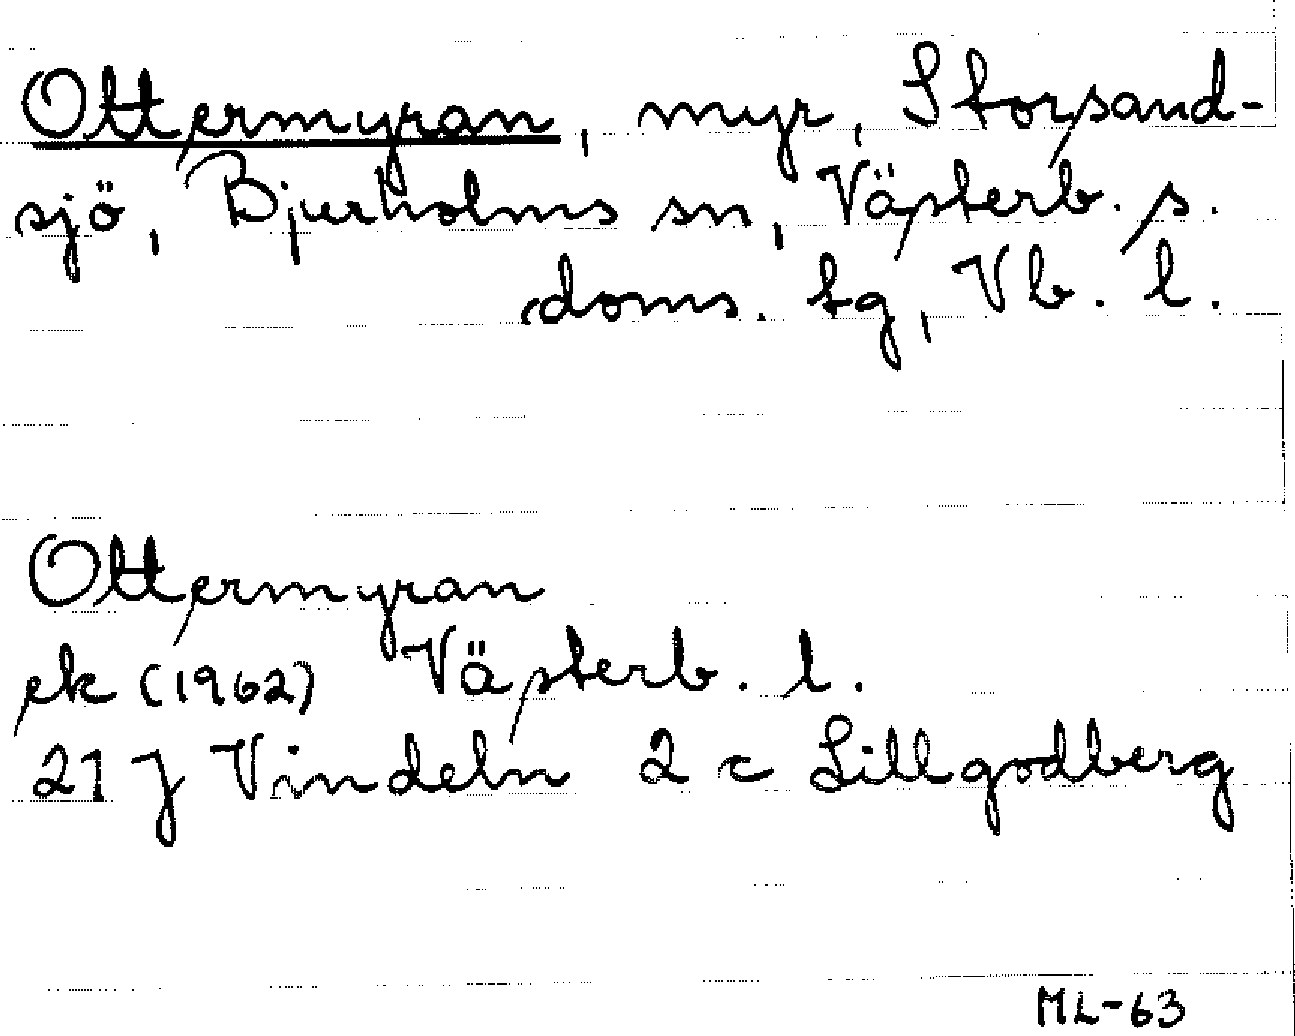 Ottermyran, myr, Storsand-
sjö, Bjurholms sn, Västerb. s.
doms. tg, Vb. l.
Ottermyran
ek (1962) Västerb. l.
21 J Vindeln 2 c Lillgodberg
ML-63